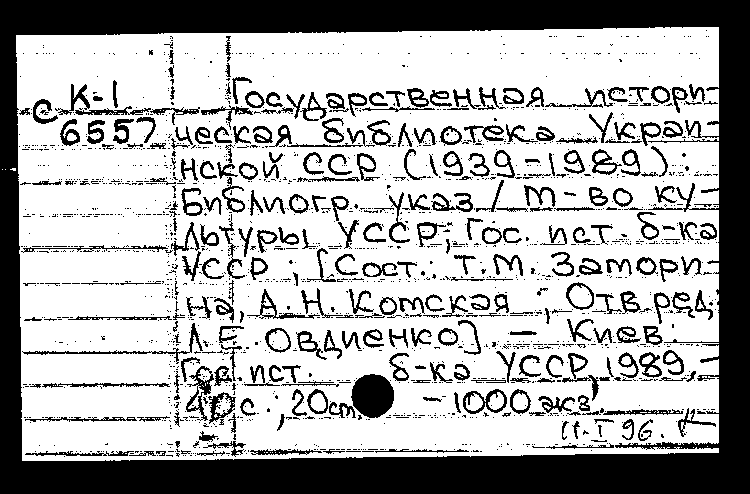 с К-1
6557
Государственная истори-
ческая библиотека Украи-
нской ССР (1939-1989):
Библиогр. указ / М-во ку-
льтуры УССР; Гос. ист. б-ка
УССР ; [Сост.: Т.М. Затори-
на, А.Н. Котская ; Отв.ред.
Л.Е. Овдиенко]. — Киев:
Гос. ист. б-ка УССР, 1989,-
40 с.; 20cm. - 1000 экз.
96.